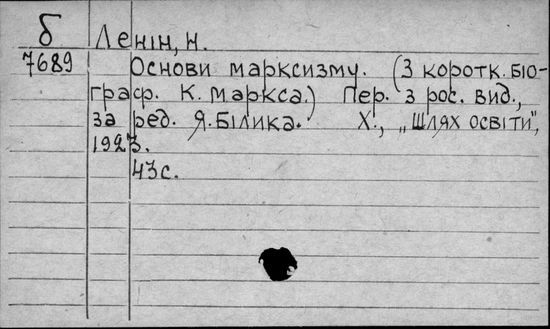 б Ленін, Н.
7689 Основи марксизму. (З коротк. біо-
граф. К. Маркса.) Пер. з рос. вид.,
за ред. Я. Білика. Х., „Шлях освіти",
1923.
43 с.